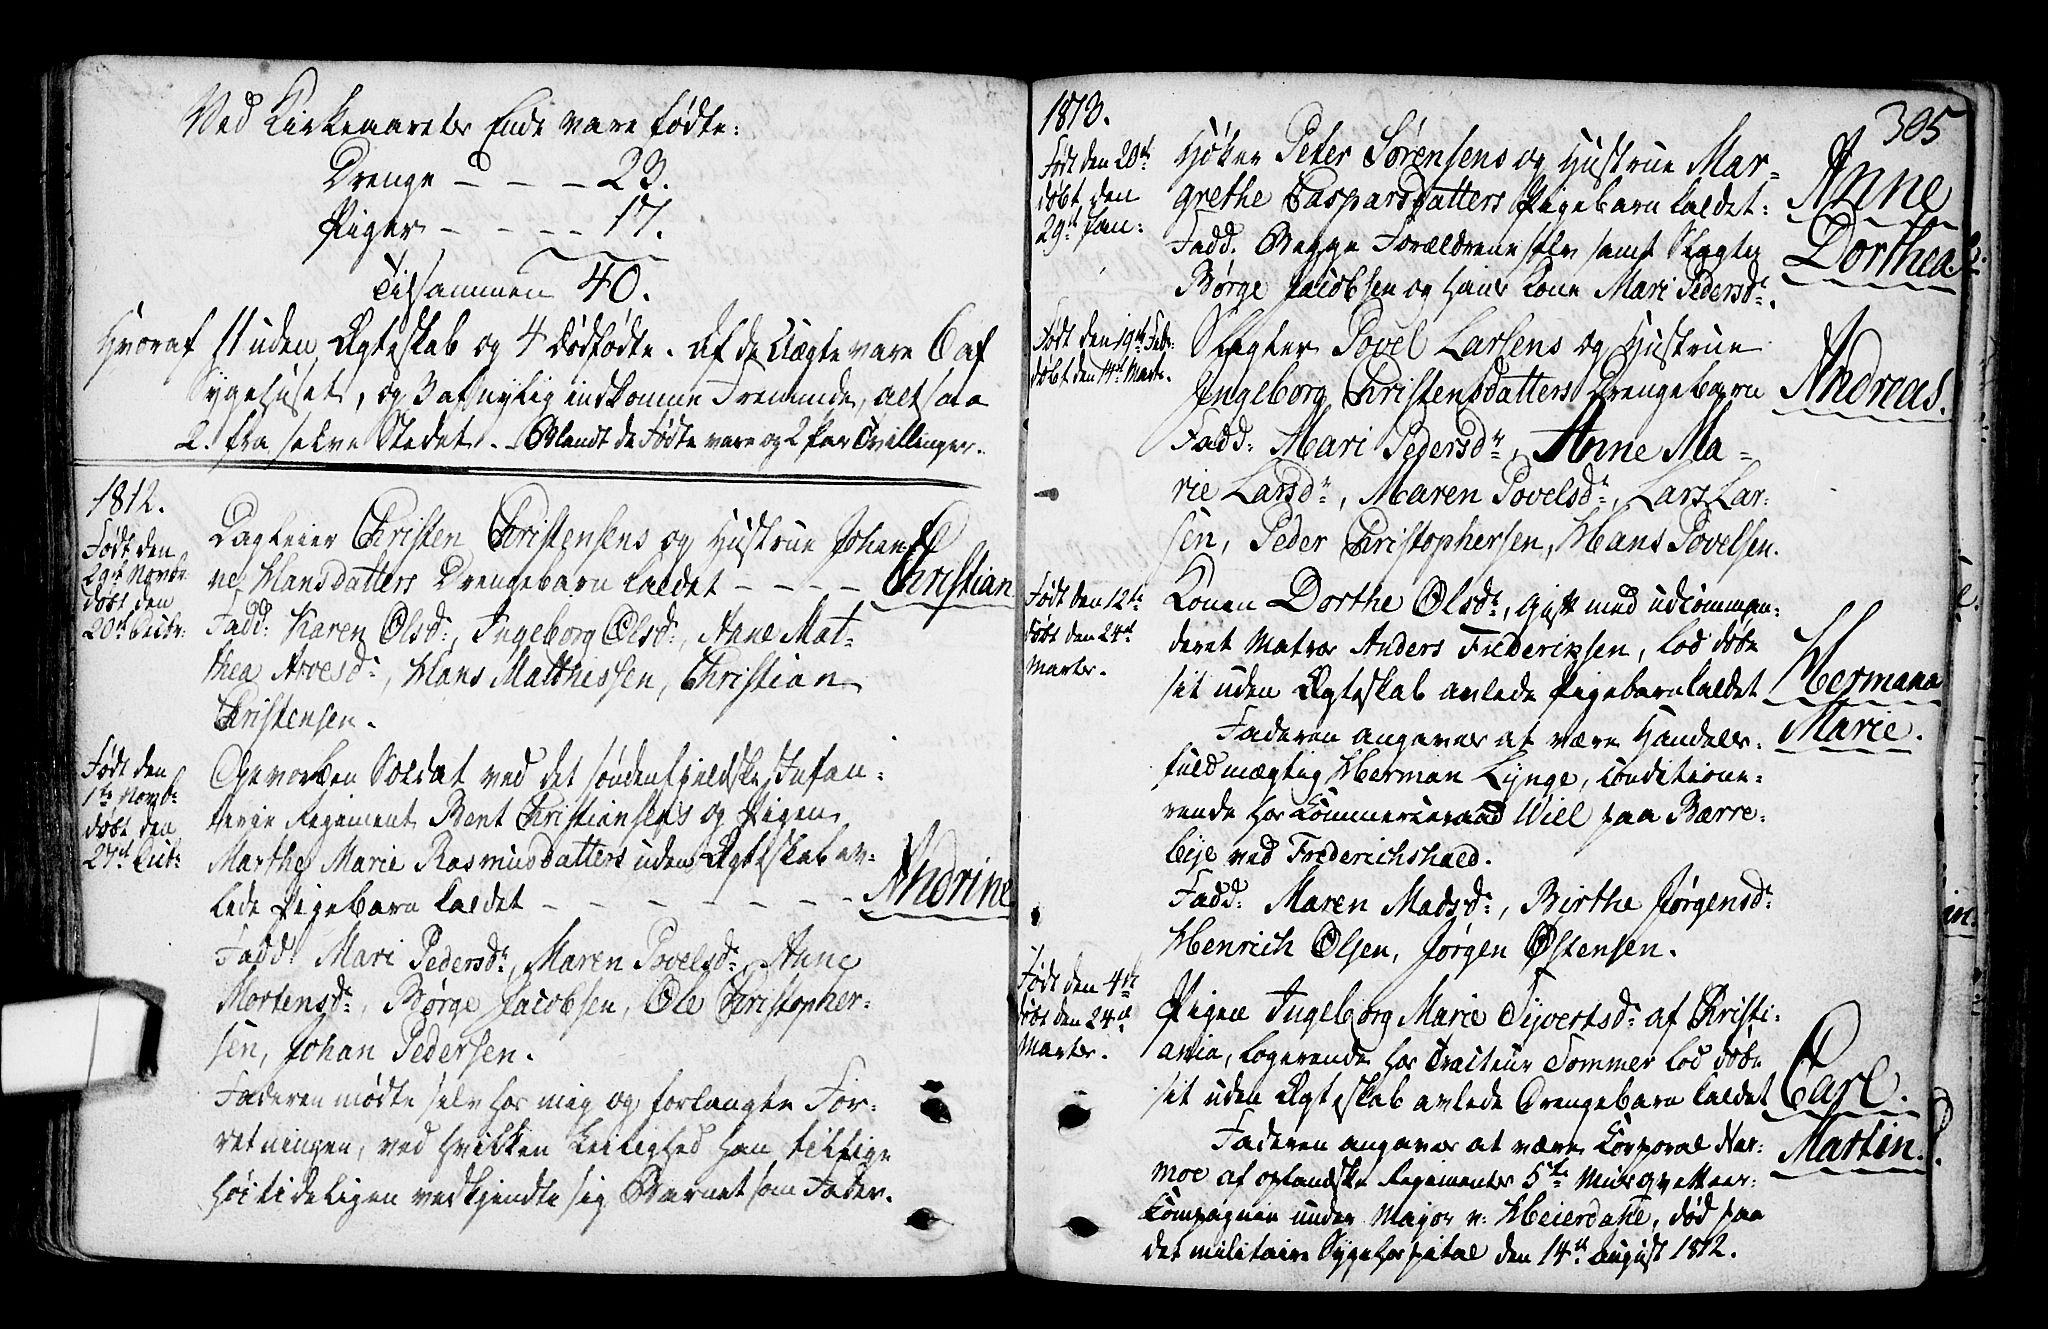 Ved Kirkeaarets Ende vare fødte:
Drenge — — — 23.
Piger — — — — 17.
Tilsammen 40.
Hvoraf 11 uden Ægteskab og 4 dødfødte. Af de Uægte vare 6 af
Sygehuset, og 3 af nylig indkomne Fremmede, altsaa
2. fra selve Stedet. Blandt de Fødte vare og 2 Par Tvillinger.
1812.
Født den
29de Novbr
døbt den
20de Decbr:
Dagleier Christen Christensens og Hustrue Johan-
ne Hansdatters Drengebarn kaldet — — — — Christian
Fadd: Karen Olsd:, Ingeborg Olsd:, Anne Mat-
thea Arvesd:, Hans Matthissen, Christian
Christensen.
Født den
1te Novbr
døbt den
27de Decbr
Gevorben Soldat ved det søndenfieldske Infan-
terie Regiment Bent Christiansens og Pigen
Marthe Marie Rasmusdatters uden Ægteskab av-
lede Pigebarn kaldet — — — — — — — Andrine
Fadd: Mari Pedersdr, Maren Povelsdr, Anne
Mortensdr, Børge Jacobsen, Ole Christopher-
sen, Johan Pedersen.
Faderen mødte selv hos mig og forlangte For-
retningen, ved hvilken Leilighed han tillige
høitideligen vedkjendte sig Barnet som Fader.
305
1813.
Født den 20de
døbt den
29de Jan:
Høker Peter Sørensens og Hustrue Mar-
grethe Caspersdatters Pigebarn kaldet: Anne
Dorthea.
Fadd: Begge Forældrene selv samt Slagter
Børge Jacobsen og hans Kone Mari Pedersdr.
Født den 19de Febr:
døbt den 14de Marts.
Slagter Povel Larsens og Hustrue
Ingeborg Christensdatters Drengebarn Andreas.
Fadd: Mari Pedersdr, Anne Ma-
rie Larsdr, Maren Povelsdr, Lars Lar-
sen, Peder Christophersen, Hans Povelsen.
Født den 12te
døbt den 24de
Marts.
Konen Dorthe Olsdr, gift med udcomman-
deret Matros Anders Frederiksen, lod døbe
sit uden Ægteskab avlede Pigebarn kaldet Hermana
Marie.
Faderen angaves at være Handels-
fuldmægtig Herman Lynge, conditione-
rende hos Commerceraad Wiel paa Bærre-
bye ved Friderichshald.
Fadd: Maren Madsdr, Birthe Jørgensdr
Henrich Olsen, Jørgen Østensen.
Født den 4de
døbt den 24de
Marts.
Pigen Ingeborg Marie Syvertsdr af Christi-
ania, logerende hos Tracteur Sommer lod døbe
sit uden Ægteskab avlede Drengebarn kaldet Carl
Martin.
Faderen angaves at være Corporal Nar-
moe af oplandske Regiments 5te Musqvetteer-
Compagnie under Major v: Heierdahl, død paa
det militaire Sygehospital den 14de August 1812.